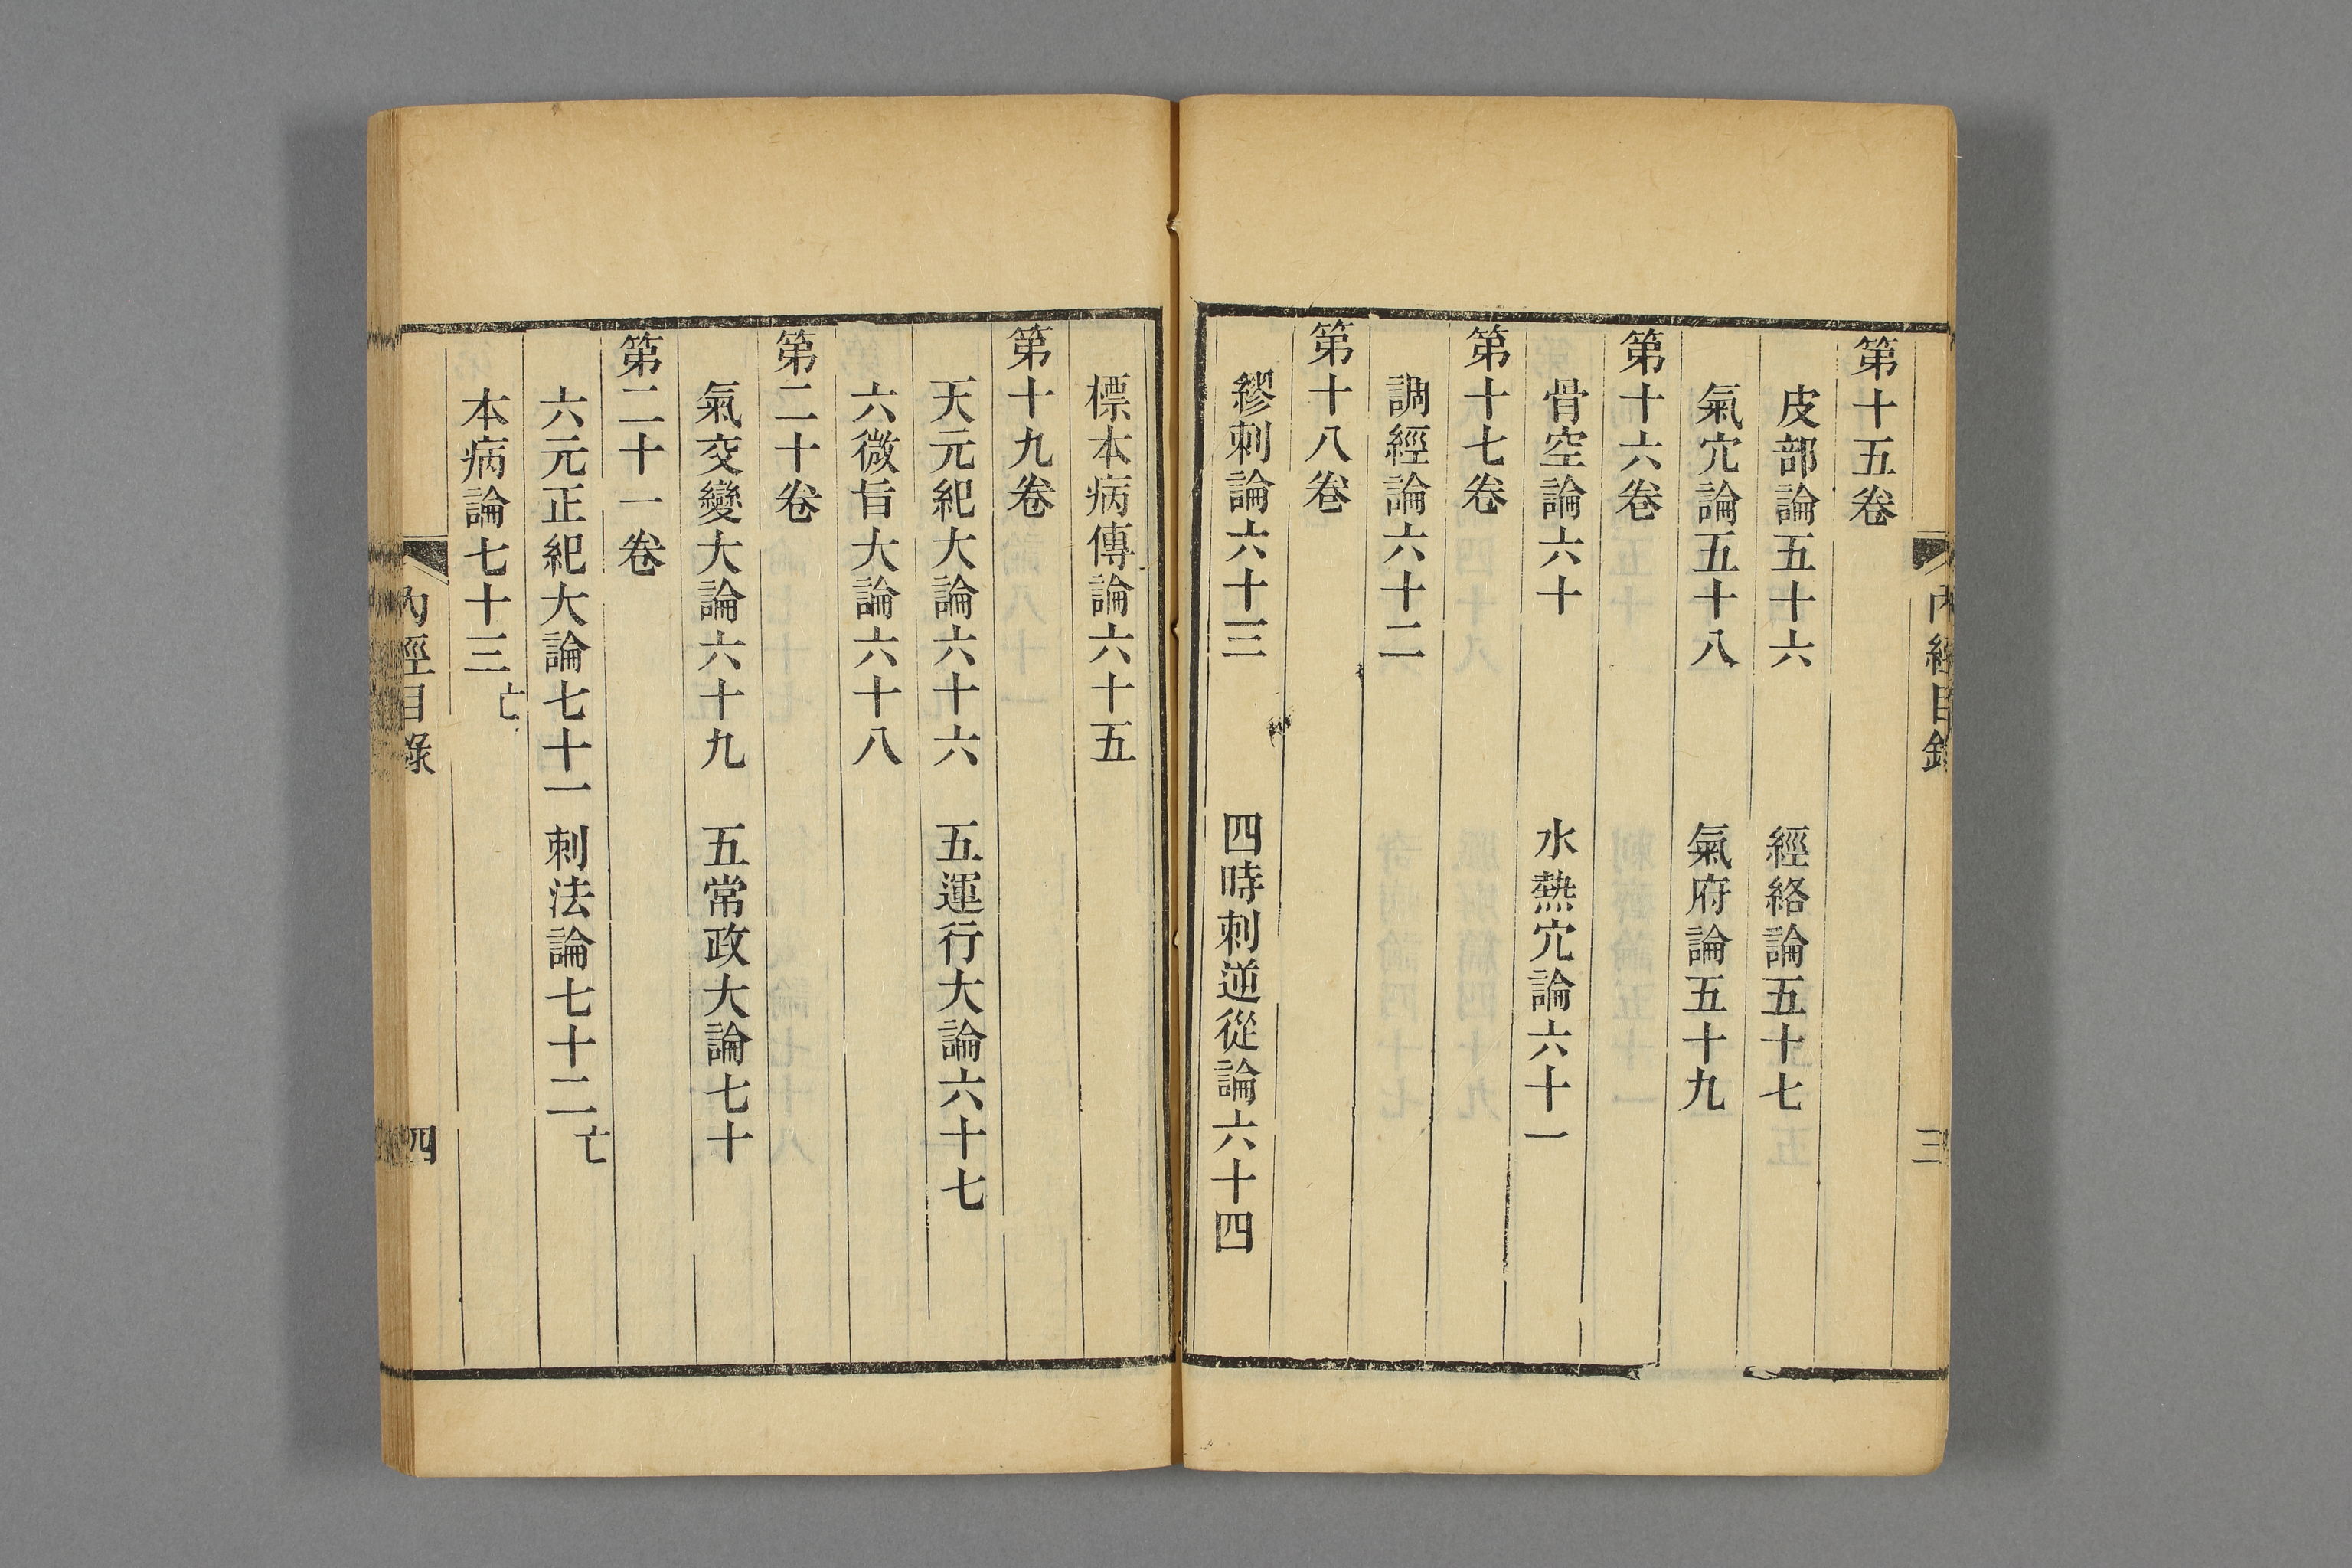 內經目錄
三
第十五卷
皮部論五十六　經絡論五十七
氣穴論五十八　氣府論五十九
第十六卷
骨空論六十　水熱穴論六十一
第十七卷
調經論六十二
第十八卷
繆刺論六十三　四時刺逆從論六十四
標本病傳論六十五
第十九卷
天元紀大論六十六　五運行大論六十七
六微旨大論六十八
第二十卷
氣交變大論六十九　五常政大論七十
第二十一卷
六元正紀大論七十一　刺法論七十二亡
本病論七十三亡
內經目錄
四